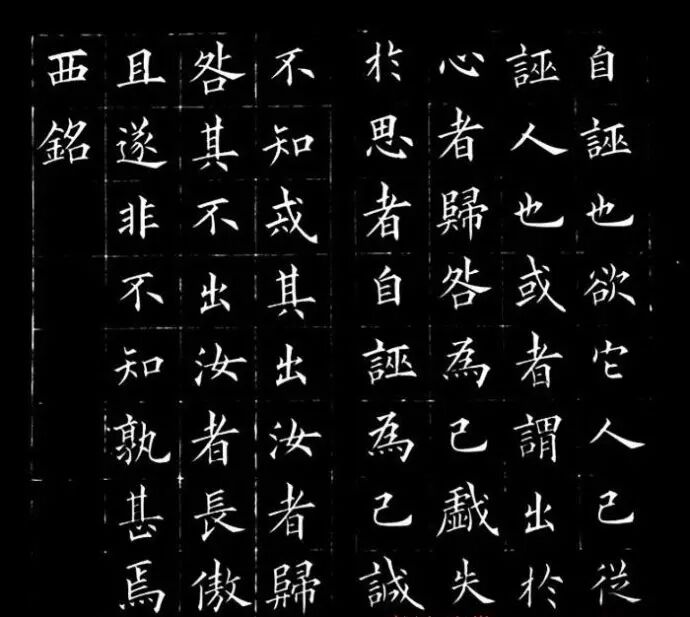 自誣也欲它人己從
誣人也或者謂出於
心者歸咎為己戲失
於思者自誣為己誠
不知戒其出汝者歸
咎其不出汝者長傲
且遂非不知孰甚焉
西銘